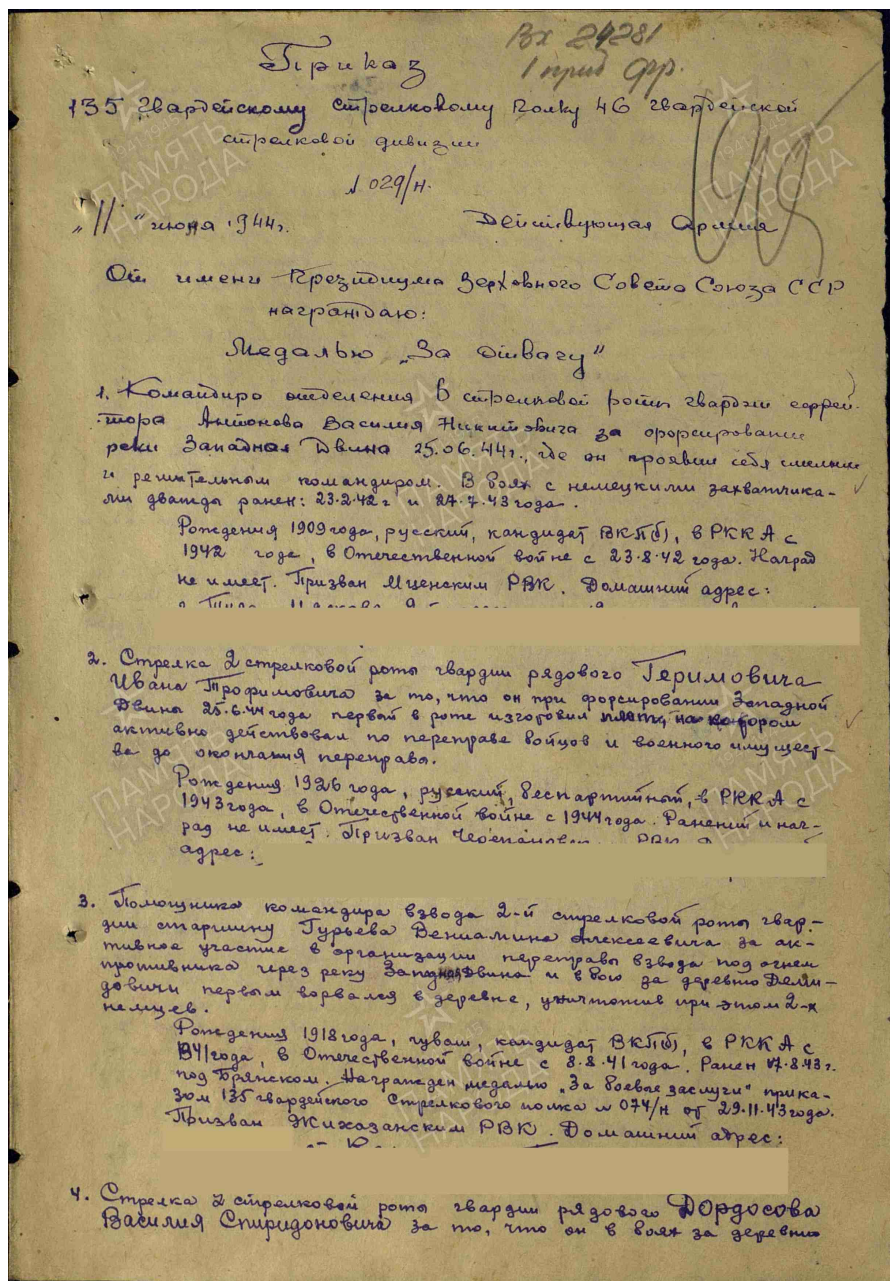 Вх 24281
1 приб фр.
Приказ
135 Гвардейскому стрелковому полку 46 гвардейской
стрелковой дивизии
№ 029/н.
„11" июня 1944г. Действующая Армия
От имени Президиума Верховного Совета Союза ССР
награждаю:
Медалью „За отвагу"
1. Командира отделения 6 стрелковой роты гвардии ефрей-
тора Антонова Василия Никитовича за форсирование
реки Западная Двина 25.06.44г., где он проявил себя смелым
и решительным командиром. В боях с немецкими захватчика-
ми дважды ранен: 23.2.42г и 27.7.43 года.
Рождения 1909 года, русский, кандидат ВКП(б), в РККА с
1942 года, в Отечественной войне с 23.8.42 года. Наград
не имеет. Призван Мценским РВК. Домашний адрес:
2. Стрелка 2 стрелковой роты гвардии рядового Геримовича
Ивана Трофимовича за то, что он при форсировании Западной
Двины 25.6.44 года первый в роте изготовил плот, на котором
активно действовал по переправе бойцов и военного имущест-
ва до окончания переправы.
Рождения 1926 года, русский, беспартийный, в РККА с
1943 года, в Отечественной войне с 1944 года. Ранений и наг-
рад не имеет. Призван РВК.
адрес:
3. Помощника командира взвода 2-й стрелковой роты гвар-
дии старшину Гурьева Вениамина Алексеевича за ак-
тивное участие в организации переправы взвода под огнем
противника через реку Западная Двина и в бою за деревню Деми-
довичи первым ворвался в деревне, уничтожив при этом 2-х
немцев.
Рождения 1918 года, чуваш, кандидат ВКП(б), в РККА с
1941 года, в Отечественной войне с 8.8.41 года. Ранен 17.8.43г.
под Брянском. Награжден медалью „За боевые заслуги" прика-
зом 135 гвардейского Стрелкового полка № 074/н от 29.11.43 года.
Призван Жихазанским РВК. Домашний адрес:
4. Стрелка 2 стрелковой роты гвардии рядового Дордосова
Василия Спиридоновича за то, что он в боях за деревню
ПАМЯТЬ
НАРОДА
ПАМЯТЬ
НАРОДА
ПАМЯТЬ
НАРОДА
ПАМЯТЬ
НАРОДА